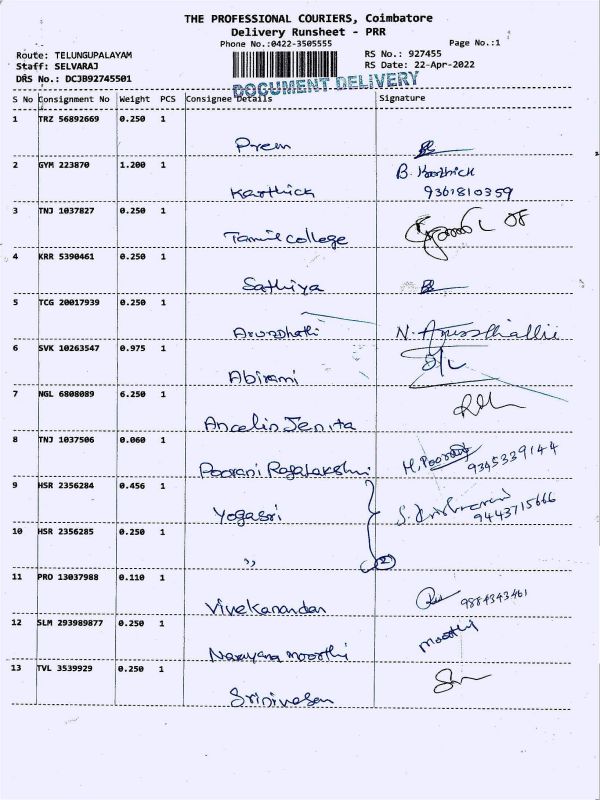 THE PROFESSIONAL COURIERS, Coimbatore
Delivery Runsheet - PRR
Phone No.:0422-3505555
Page No.:1
Route: TELUNGUPALAYAM
Staff: SELVARAJ
DRS No.: DCJB92745501
RS No.: 927455
RS Date: 22-Apr-2022
DOCUMENT DELIVERY
S No Consignment No Weight PCS Consignee Details Signature
1 TRZ 56892669 0.250 1
Prem
2 GYM 223870 1.200 1 B. Karthick
Karthick 9361810359
3 TNJ 1037827 0.250 1
Tamil college
4 KRR 5390461 0.250 1
Sathiya
5 TCG 20017939 0.250 1
Arundhathi
6 SVK 10263547 0.975 1
Abirami
7 NGL 6808089 6.250 1
Ancelin Jenita
8 TNJ 1037506 0.060 1
Poorani Rajalakshmi 9345339144
9 HSR 2356284 0.456 1
Yogasri 9443715666
10 HSR 2356285 0.250 1
,, 2
11 PRO 13037988 0.110 1
Vivekanandan 9884343461
12 SLM 293989877 0.250 1 moorthi
Narayana moorthi
13 TVL 3539929 0.250 1
Srinivasan